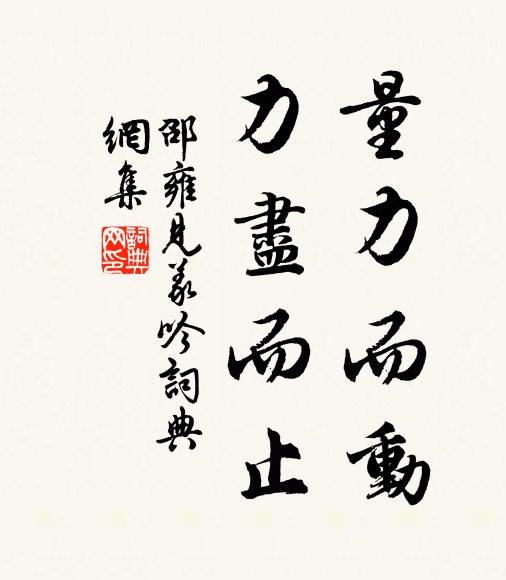 量力而動
力盡而止
邵雍見義吟詞典
網集
詞典
网印